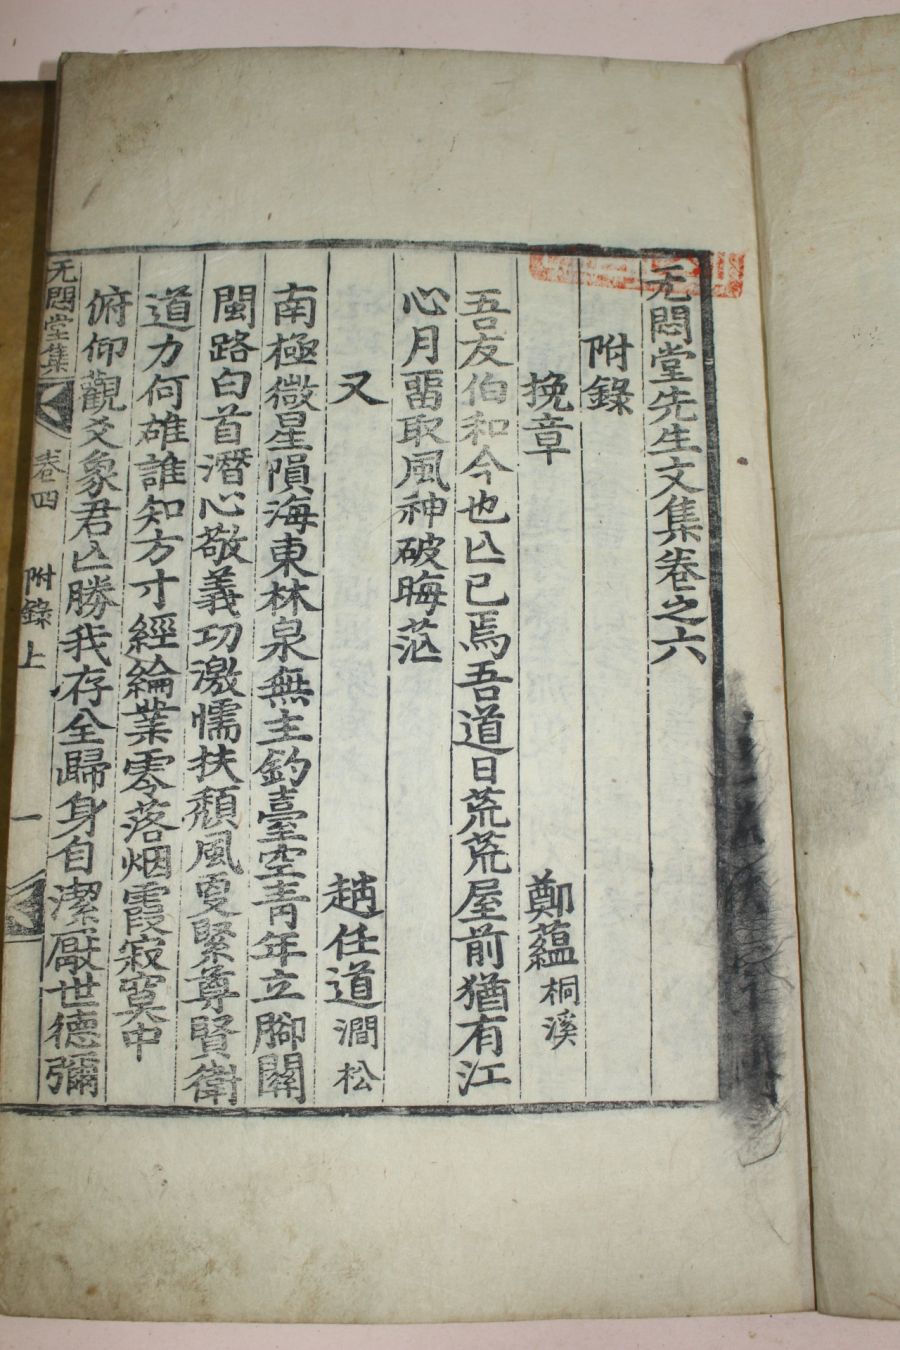 无悶堂先生文集卷之六
附錄
挽章
鄭蘊 桐溪
吾友伯和今也亾已焉吾道日荒荒屋前猶有江
心月畱取風神破晦茫
又 趙任道 澗松
南極微星隕海東林泉無主釣臺空靑年立腳關
閩路白首潛心敬義功激懦扶頹風更緊尊賢衛
道力何雄誰知方寸經綸業零落烟霞寂寞中
俯仰觀爻象君亾勝我存全歸身自潔厭世德彌
无悶堂集 卷四 附錄上 一